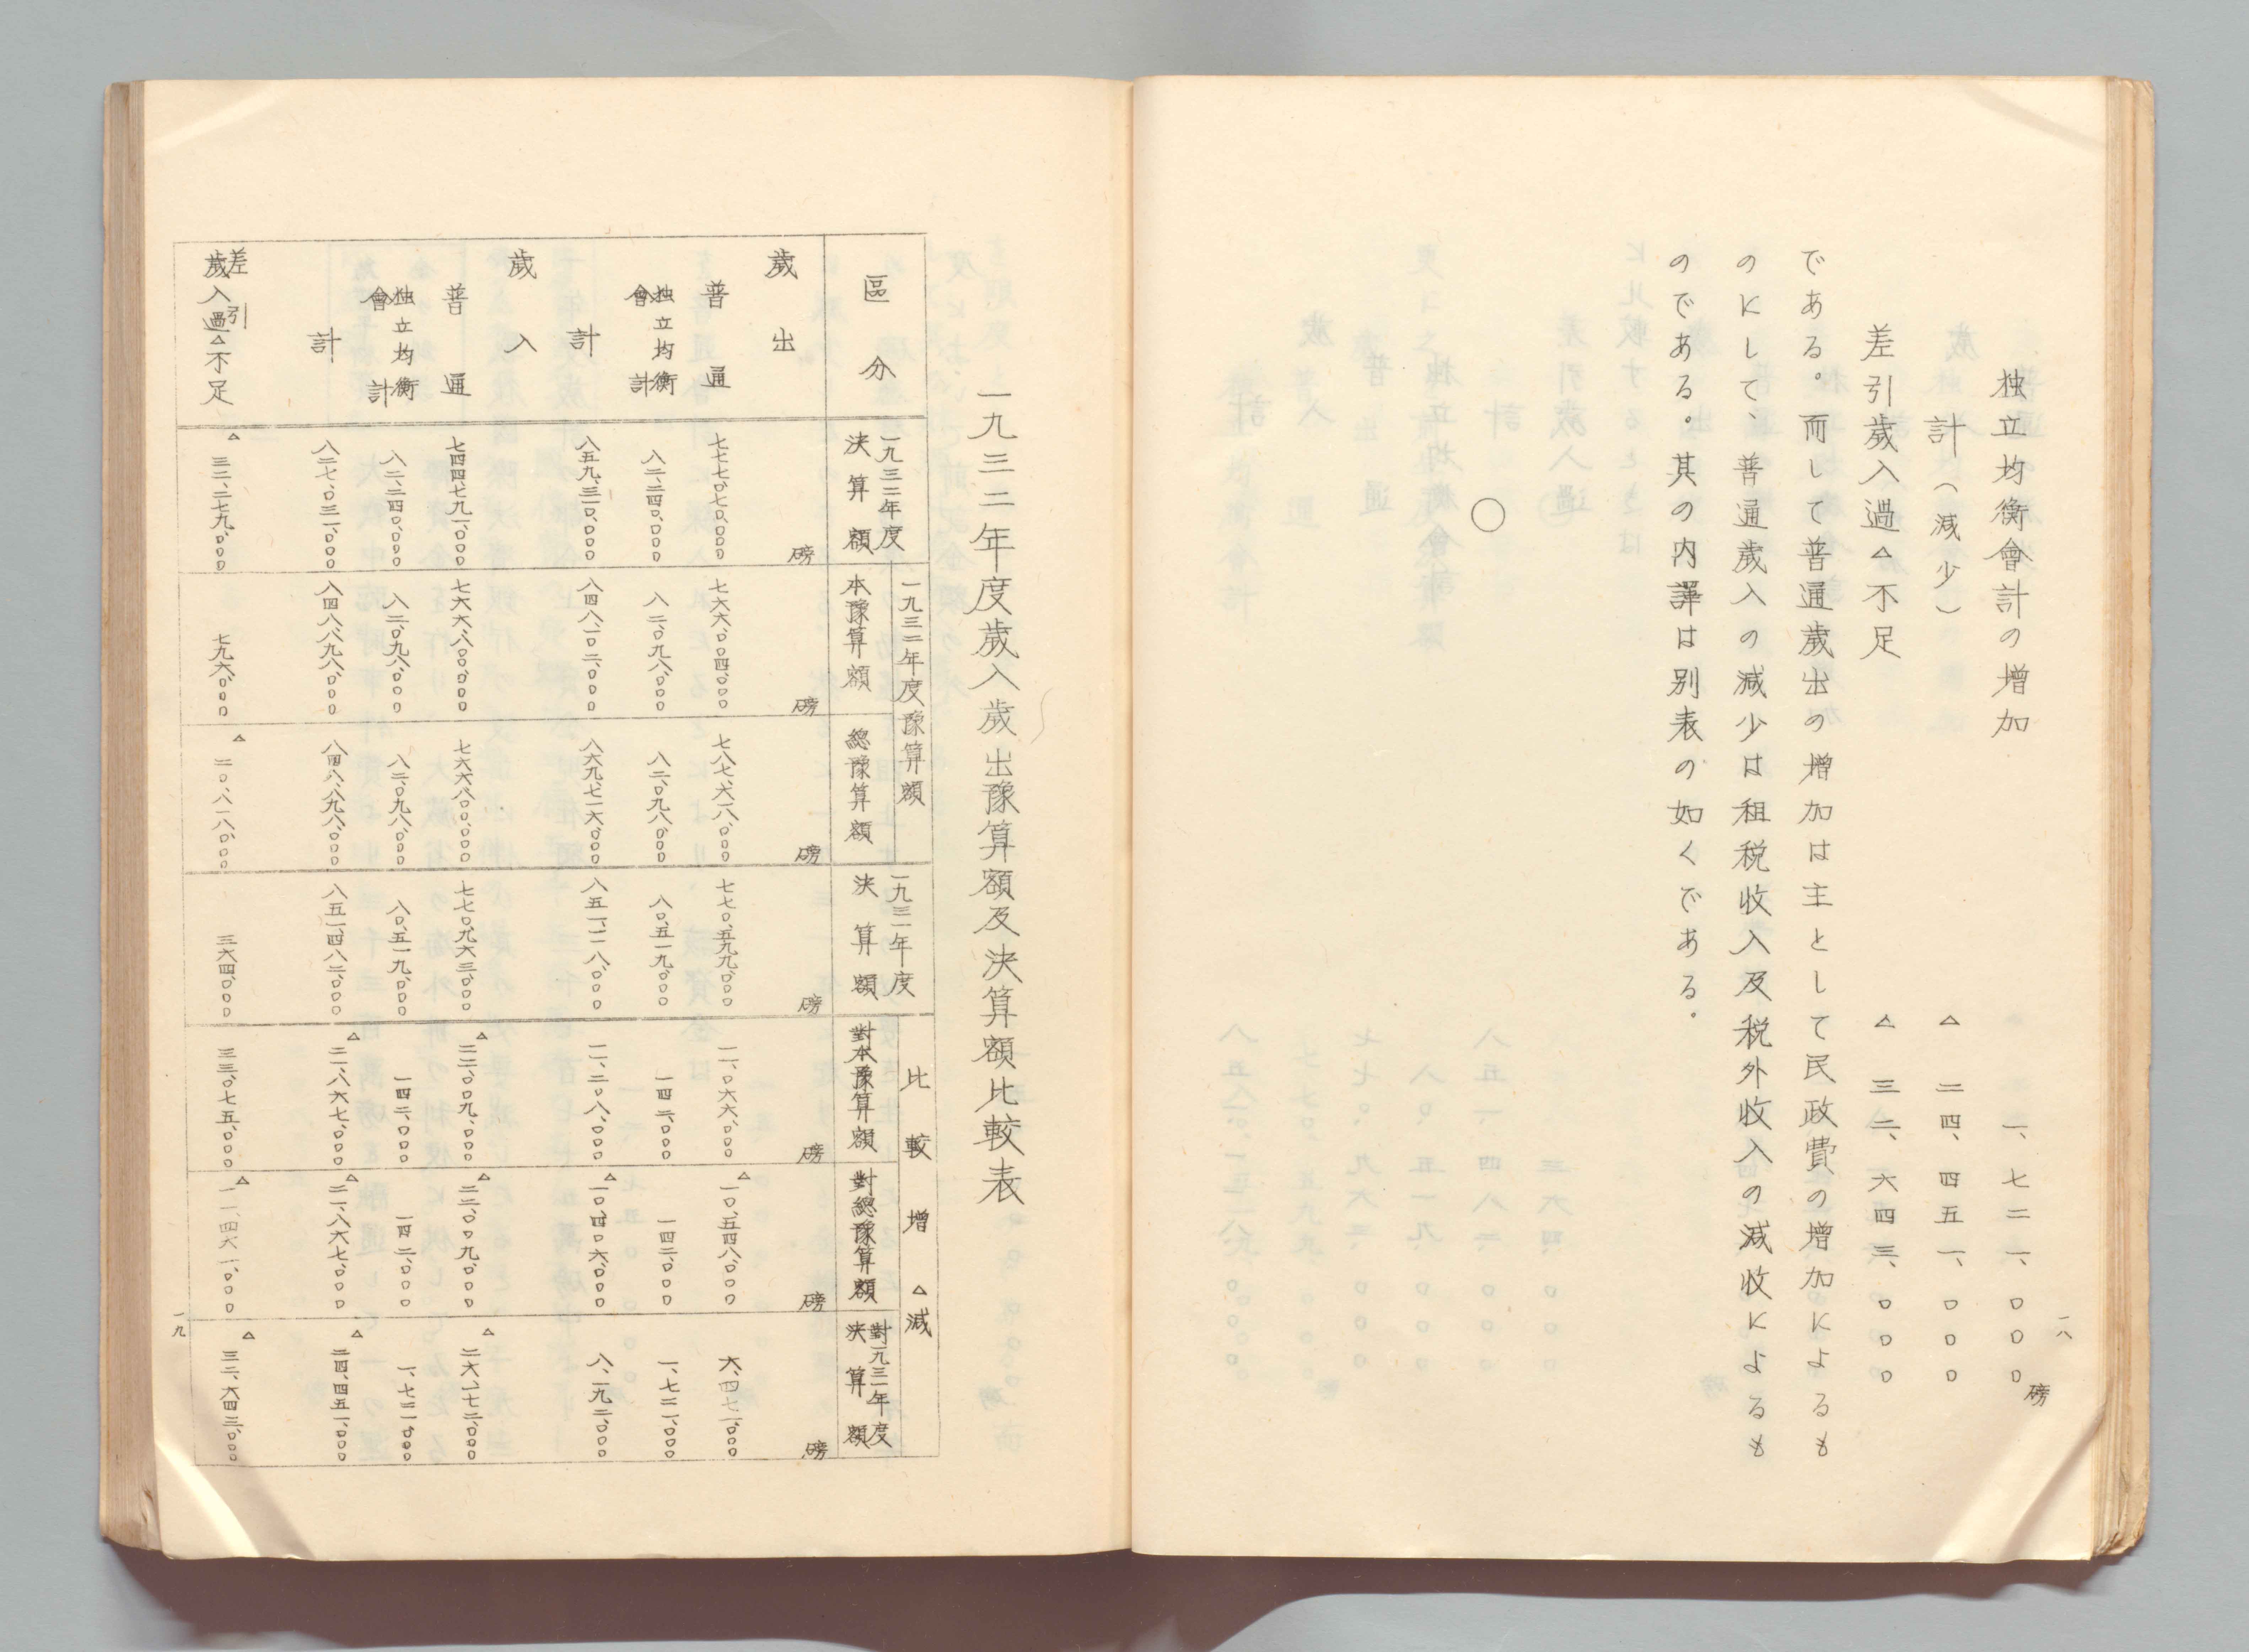 一八
独立均衡會計の増加 一、七二一、〇〇〇磅
計(減少) △ 二四、四五一、〇〇〇
差引歳入過△不足 △ 三二、六四三、〇〇〇
である。而して普通歳出の増加は主として民政費の増加によるも
のにして、普通歳入の減少は租税收入及税外收入の減收によるも
のである。其の内譯は別表の如くである。
〇
一九三二年度歳入歳出豫算額及決算額比較表
區分 一九三二年度決算額 一九三二年度豫算額 本豫算額 總豫算額 一九三一年度決算額 比較増△減 對本豫算額 對總豫算額 對一九三一年度決算額
歳出 磅 磅 磅 磅 磅 磅 磅
普通 七七七、〇七〇、〇〇〇 七六六、〇〇四、〇〇〇 七八七、六一八、〇〇〇 七七〇、五九九、〇〇〇 一一、〇六六、〇〇〇 △一〇、五四八、〇〇〇 六、四七一、〇〇〇
独立均衡會計 八二、二四〇、〇〇〇 八二、〇九八、〇〇〇 八二、〇九八、〇〇〇 八〇、五一九、〇〇〇 一四二、〇〇〇 一四二、〇〇〇 一、七二一、〇〇〇
計 八五九、三一〇、〇〇〇 八四八、一〇二、〇〇〇 八六九、七一六、〇〇〇 八五一、一一八、〇〇〇 一一、二〇八、〇〇〇 △一〇、四〇六、〇〇〇 八、一九二、〇〇〇
歳入
普通 七四四、七九一、〇〇〇 七六六、八〇〇、〇〇〇 七六六、八〇〇、〇〇〇 七七〇、九六三、〇〇〇 △二二、〇〇九、〇〇〇 △二二、〇〇九、〇〇〇 △二六、一七二、〇〇〇
独立均衡會計 八二、二四〇、〇〇〇 八二、〇九八、〇〇〇 八二、〇九八、〇〇〇 八〇、五一九、〇〇〇 一四二、〇〇〇 一四二、〇〇〇 一、七二一、〇〇〇
計 八二七、〇三一、〇〇〇 八四八、八九八、〇〇〇 八四八、八九八、〇〇〇 八五一、四八二、〇〇〇 △二一、八六七、〇〇〇 △二一、八六七、〇〇〇 △二四、四五一、〇〇〇
差引歳入過△不足 △三二、二七九、〇〇〇 七九六、〇〇〇 △二〇、八一八、〇〇〇 三六四、〇〇〇 三三、〇七五、〇〇〇 △一一、四六一、〇〇〇 △三二、六四三、〇〇〇
一九